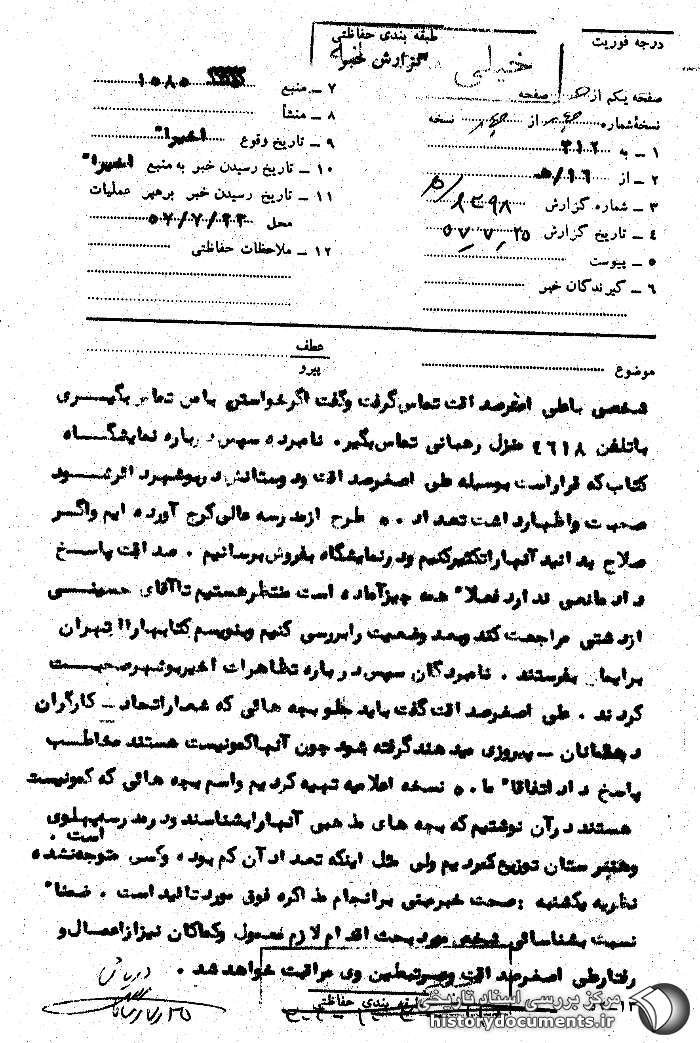 طبقه بندی حفاظتی
درجه فوریت
خیلی
گزارش خبر
صفحه یکم از صفحه
نسخهٔ شماره از نسخه
۱ – به ۳۱۲
۲ – از ۱۶/هـ
۳ – شماره گزارش
۴ – تاریخ گزارش ۵۷/۷/۲۵
۵ – پیوست
۶ – گیرندگان خبر
۷ – منبع ۱۰۸۵
۸ – منشأ
۹ – تاریخ وقوع اخیرا"
۱۰ – تاریخ رسیدن خبر به منبع اخیرا"
۱۱ – تاریخ رسیدن خبر برهبر عملیات
محل ۵۷/۷/۲۳
۱۲ – ملاحظات حفاظتی
موضوع
عطف
پیرو
شخصی باعلی اصغرصداقت تماس گرفت وگفت اگرخواستی بامن تماس بگیری
باتلفن ۴۶۱۸ منزل رهبانی تماس بگیر. نامبرده سپس درباره نمایشگاه
کتاب که قراراست بوسیله علی اصغرصداقت ودوستانش دربوشهر دائرشود
صحبت واظهارداشت تعداد ۵۰ طرح ازمدرسه عالی کرج آورده ایم واگر
صلاح بدانید آنهاراتکثیرکنیم ودرنمایشگاه بفروش برسانیم . صداقت پاسخ
داد مانعی ندارد فعلا" همه چیزآماده است منتظرهستیم تاآقای حسینی
ازدشتی مراجعت کند وبعد وضعیت رابررسی کنیم وبنویسم کتابهاراازتهران
برایمان بفرستند . نامبردگان سپس درباره تظاهرات اخیربوشهرصحبت
کردند . علی اصغرصداقت گفت باید جلو بچه هائی که شعاراتحاد – کارگران
دهقانان – پیروزی میدهند گرفته شود چون آنها کمونیست هستند مخاطب
پاسخ داد اتفاقا" ما ۵۰ نسخه اعلامیه تهیه کردیم واسم بچه هائی که کمونیست
هستند درآن نوشتیم که بچه های مذهبی آنهارابشناسند ودرمدرسه پهلوی
وهنرستان توزیع کردیم ولی مثل اینکه تعداد آن کم بوده وکسی متوجه نشده
است .
نظریه یکشنبه : صحت خبرمبنی برانجام مذاکره فوق مورد تائید است . ضمنا"
نسبت بشناسائی شخص مورد بحث اقدام لازم معمول وکماکان نیزازاعمال و
رفتارعلی اصغرصداقت ومرتبطین وی مراقبت خواهد شد .
طبقه بندی حفاظتی
مرکز بررسی اسناد تاریخی
historydocuments.ir